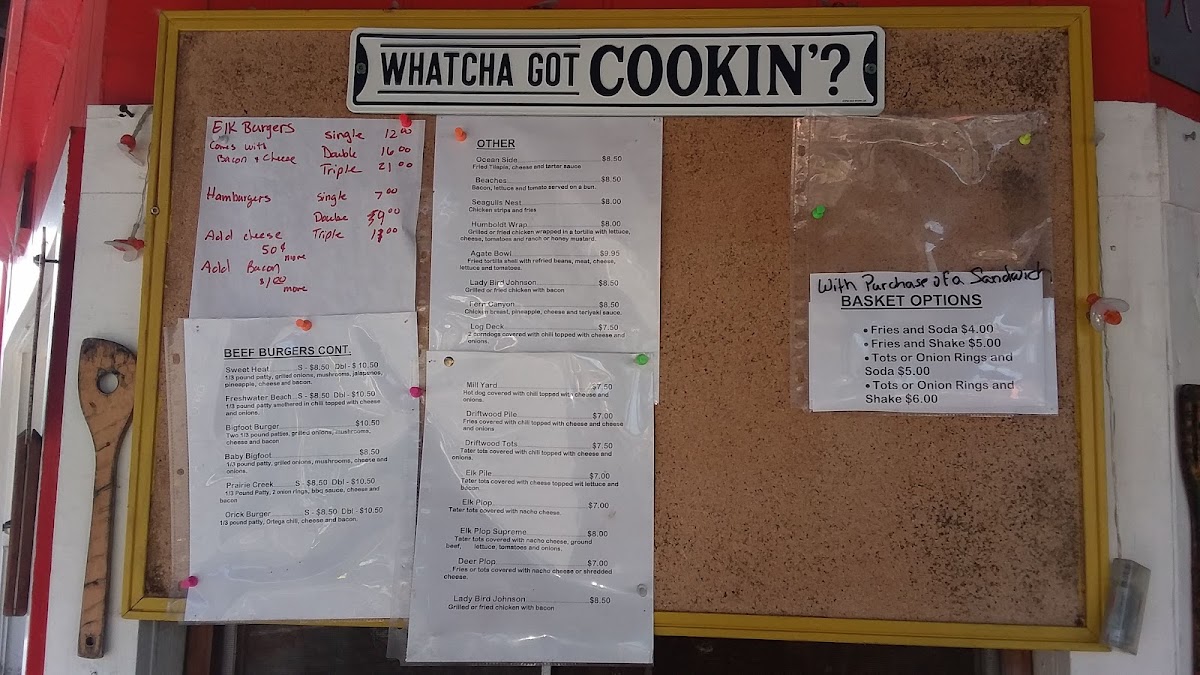 WHATCHA GOT COOKIN'?
Elk Burgers single 12.00
Comes with Double 16.00
Bacon & Cheese Triple 21.00
Hamburgers single 7.00
Double $9.00
Add cheese Triple 13.00
50¢
more
Add Bacon
$1.00
more
BEEF BURGERS CONT.
Sweet Heat S - $8.50 Dbl - $10.50
1/3 pound patty, grilled onions, mushrooms, jalapenos,
pineapple, cheese and bacon.
Freshwater Beach S - $8.50 Dbl - $10.50
1/3 pound patty smothered in chili topped with cheese
and onions.
Bigfoot Burger $10.50
Two 1/3 pound patties, grilled onions, mushrooms,
cheese and bacon
Baby Bigfoot $8.50
1/3 pound patty, grilled onions, mushrooms, cheese and
onions.
Prairie Creek S - $8.50 Dbl - $10.50
1/3 Pound Patty, 2 onion rings, bbq sauce, cheese and
bacon
Orick Burger S - $8.50 Dbl - $10.50
1/3 pound patty, Ortega chili, cheese and bacon.
OTHER
Ocean Side $8.50
Fried Tilapia, cheese and tartar sauce
Beaches $8.50
Bacon, lettuce and tomato served on a bun.
Seagulls Nest $8.00
Chicken strips and fries
Humboldt Wrap $8.00
Grilled or fried chicken wrapped in a tortilla with lettuce,
cheese, tomatoes and ranch or honey mustard.
Agate Bowl $9.95
Fried tortilla shell with refried beans, meat, cheese,
lettuce and tomatoes.
Lady Bird Johnson $8.50
Grilled or fried chicken with bacon
Fern Canyon $8.50
Chicken breast, pineapple, cheese and teriyaki sauce.
Log Deck $7.50
2 corndogs covered with chili topped with cheese and
onions.
Mill Yard $7.50
Hot dog covered with chili topped with cheese and
onions.
Driftwood Pile $7.00
Fries covered with chili topped with cheese and cheese
and onions
Driftwood Tots $7.50
Tater tots covered with chili topped with cheese and
onions.
Elk Pile $7.00
Tater tots covered with cheese topped wit lettuce and
bacon.
Elk Plop $7.00
Tater tots covered with nacho cheese.
Elk Plop Supreme $8.00
Tater tots covered with nacho cheese, ground
beef, lettuce, tomatoes and onions.
Deer Plop $7.00
Fries or tots covered with nacho cheese or shredded
cheese.
Lady Bird Johnson $8.50
Grilled or fried chicken with bacon
With Purchase of a Sandwich
BASKET OPTIONS
• Fries and Soda $4.00
• Fries and Shake $5.00
• Tots or Onion Rings and
Soda $5.00
• Tots or Onion Rings and
Shake $6.00